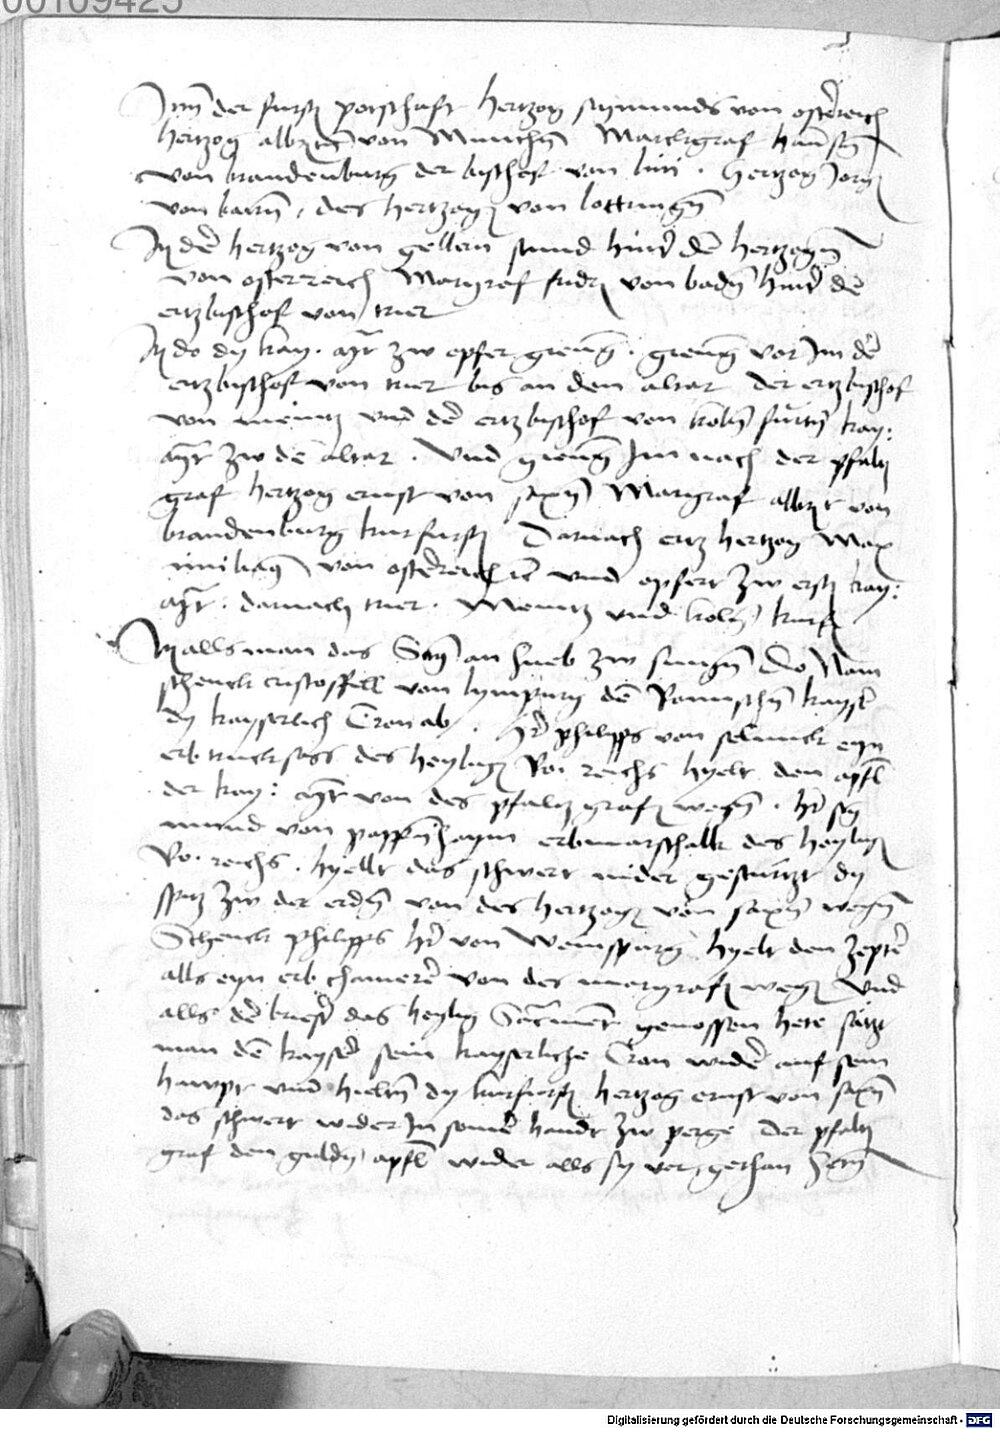 00109425
Jtm der fursten potschaft hertzog sigmunds von osterreich
hertzog albrecht von Munchen Marckgraf hannsen
von brandenburg der bischof von luti . Hertzog Jorg
von bairn , des hertzogen von lottringen
Jtem der hertzog von gellern stund hinder den hertzogen
von osterreich Margraf fridrich von baden hinder dem
ertzbischof von trier
Jtem do dy kay. Mt. zw opfer gieng . gieng vor Jm der
ertzbischof von trier bis an den altar der ertzbischof
von meintz und der ertzbischof von koln furten kay:
Mt. zw dem altar . Und gieng Jm nach der pfaltz
graf hertzog ernst von saxen Margraf albrecht von
brandenburg kurfursten Darnach ertz hertzog Max
imilian von osterreich etc und opfert zw erst kay:
Mt. darnach trier . Meintz und koln kurf
Jtem alls man das Sanctus an hueb zw singen Do Nam
schenck cristoffell von lympurg dem Romischen kayser
dy kayserlich Cron ab . Her philipps von selneck eyn
erb trucksess des heyligen Ro. reichs hyelt den apfl
der kay: Mt von des pfaltzgrafen wegen . her sig
mund von pappenhaym erbmarschalk des heyligen
Ro. reichs . hyellt das schwert nider gesturtzt dy
spitz zw der erden von des hertzogen von saxen wegen
Schenck philipps her von Weinspurg hyelt den zepter
alls eyn erb chamerer von des margrafen wegen Und
alls der briester das heylig Sacrament genossen hete satzt
man dem kayser sein kayserliche Cron wider auf sein
hawpt und hielten dy kurfursten hertzog ernst von saxen
das schwert wider Jn seiner handt zw perge der pfaltz
graf den guldin apfl wider alls sy vor gethan heten
Digitalisierung gefördert durch die Deutsche Forschungsgemeinschaft - DFG